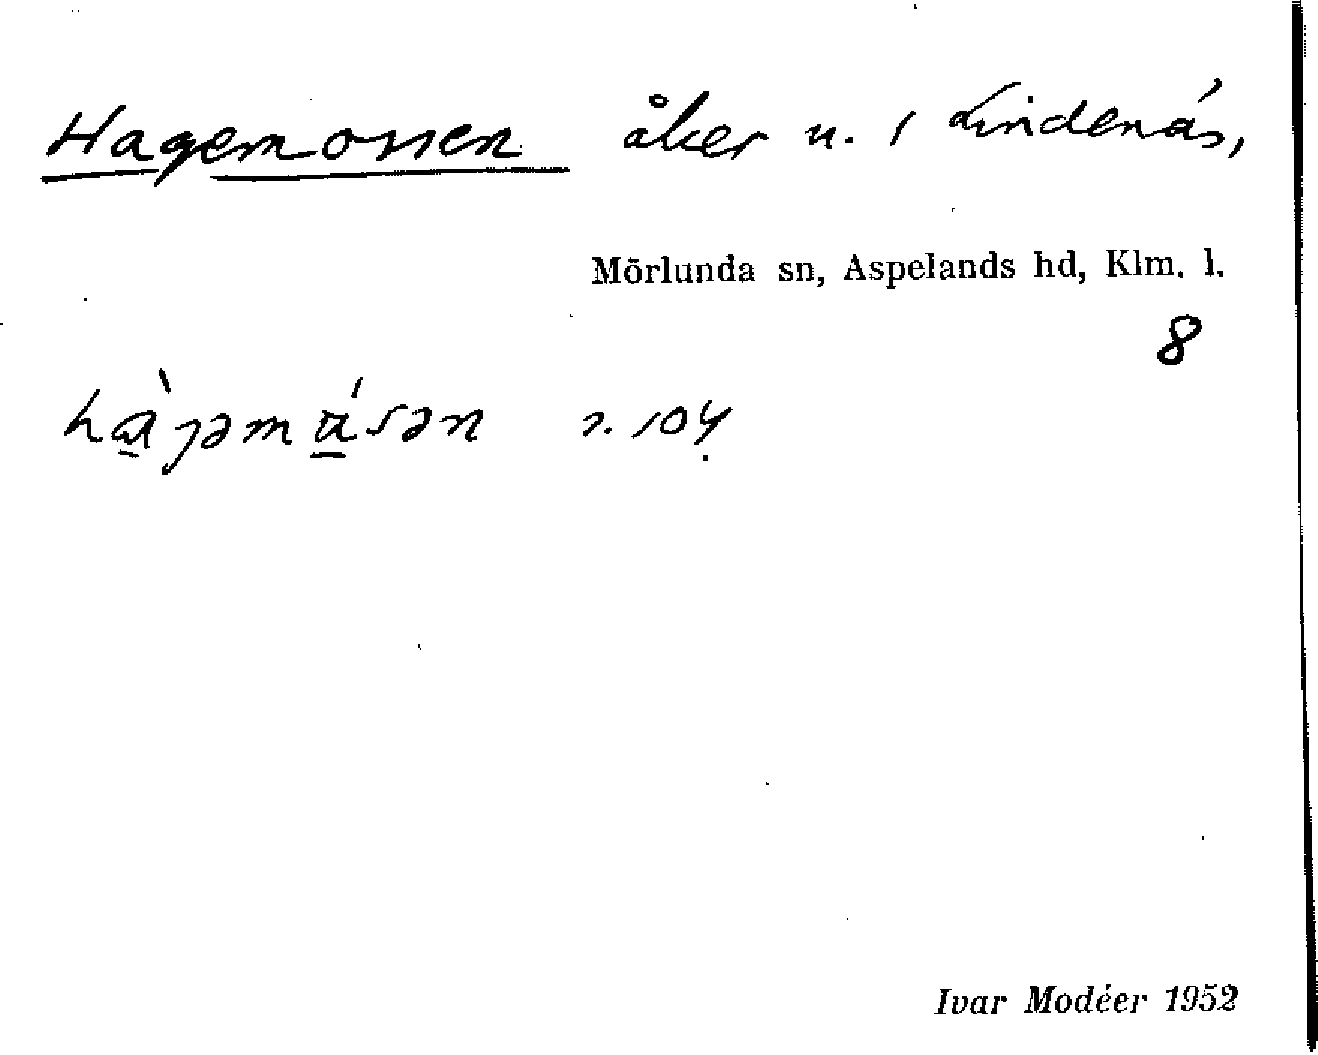 Hagemossen åker u. 1 Lindenäs,
Mörlunda sn, Aspelands hd, Klm. l.
8
104
Ivar Modéer 1952